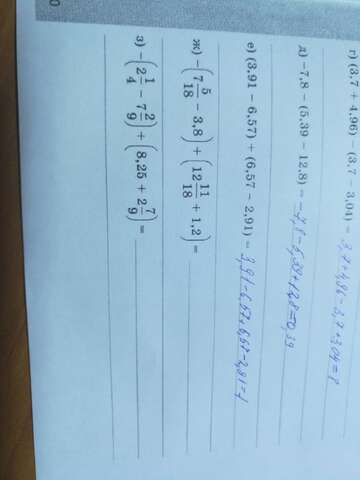 г) (3,7 + 4,96) − (3,7 − 3,04) = 3,7+4,96−3,7+3,04=8
д) −7,8 − (5,39 − 12,8) = −7,8−5,39+12,8=0,39
е) (3,91 − 6,57) + (6,57 − 2,91) = 3,91−6,57+6,57−2,91=1
ж) −(7 5/18 − 3,8) + (12 11/18 + 1,2) =
з) −(2 1/4 − 7 2/9) + (8,25 + 2 7/9) =